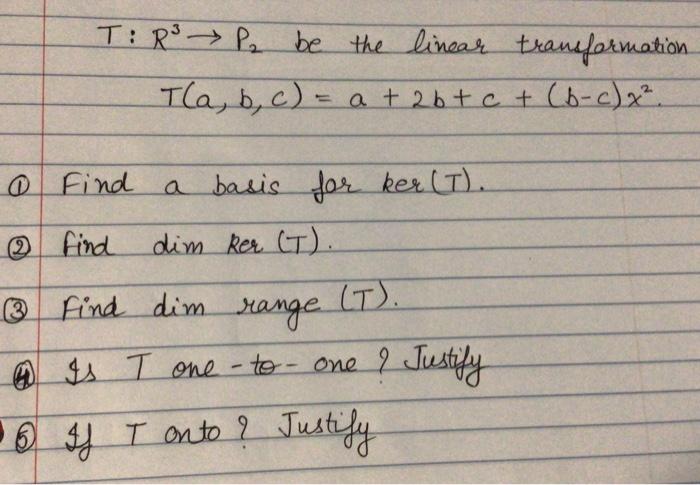 T: R³ → P₂ be the linear transformation
T(a, b, c) = a + 2b + c + (b-c)x².
① Find a basis for ker(T).
② find dim ker (T).
③ Find dim range (T).
④ Is T one-to-one? Justify
⑤ If T onto? Justify